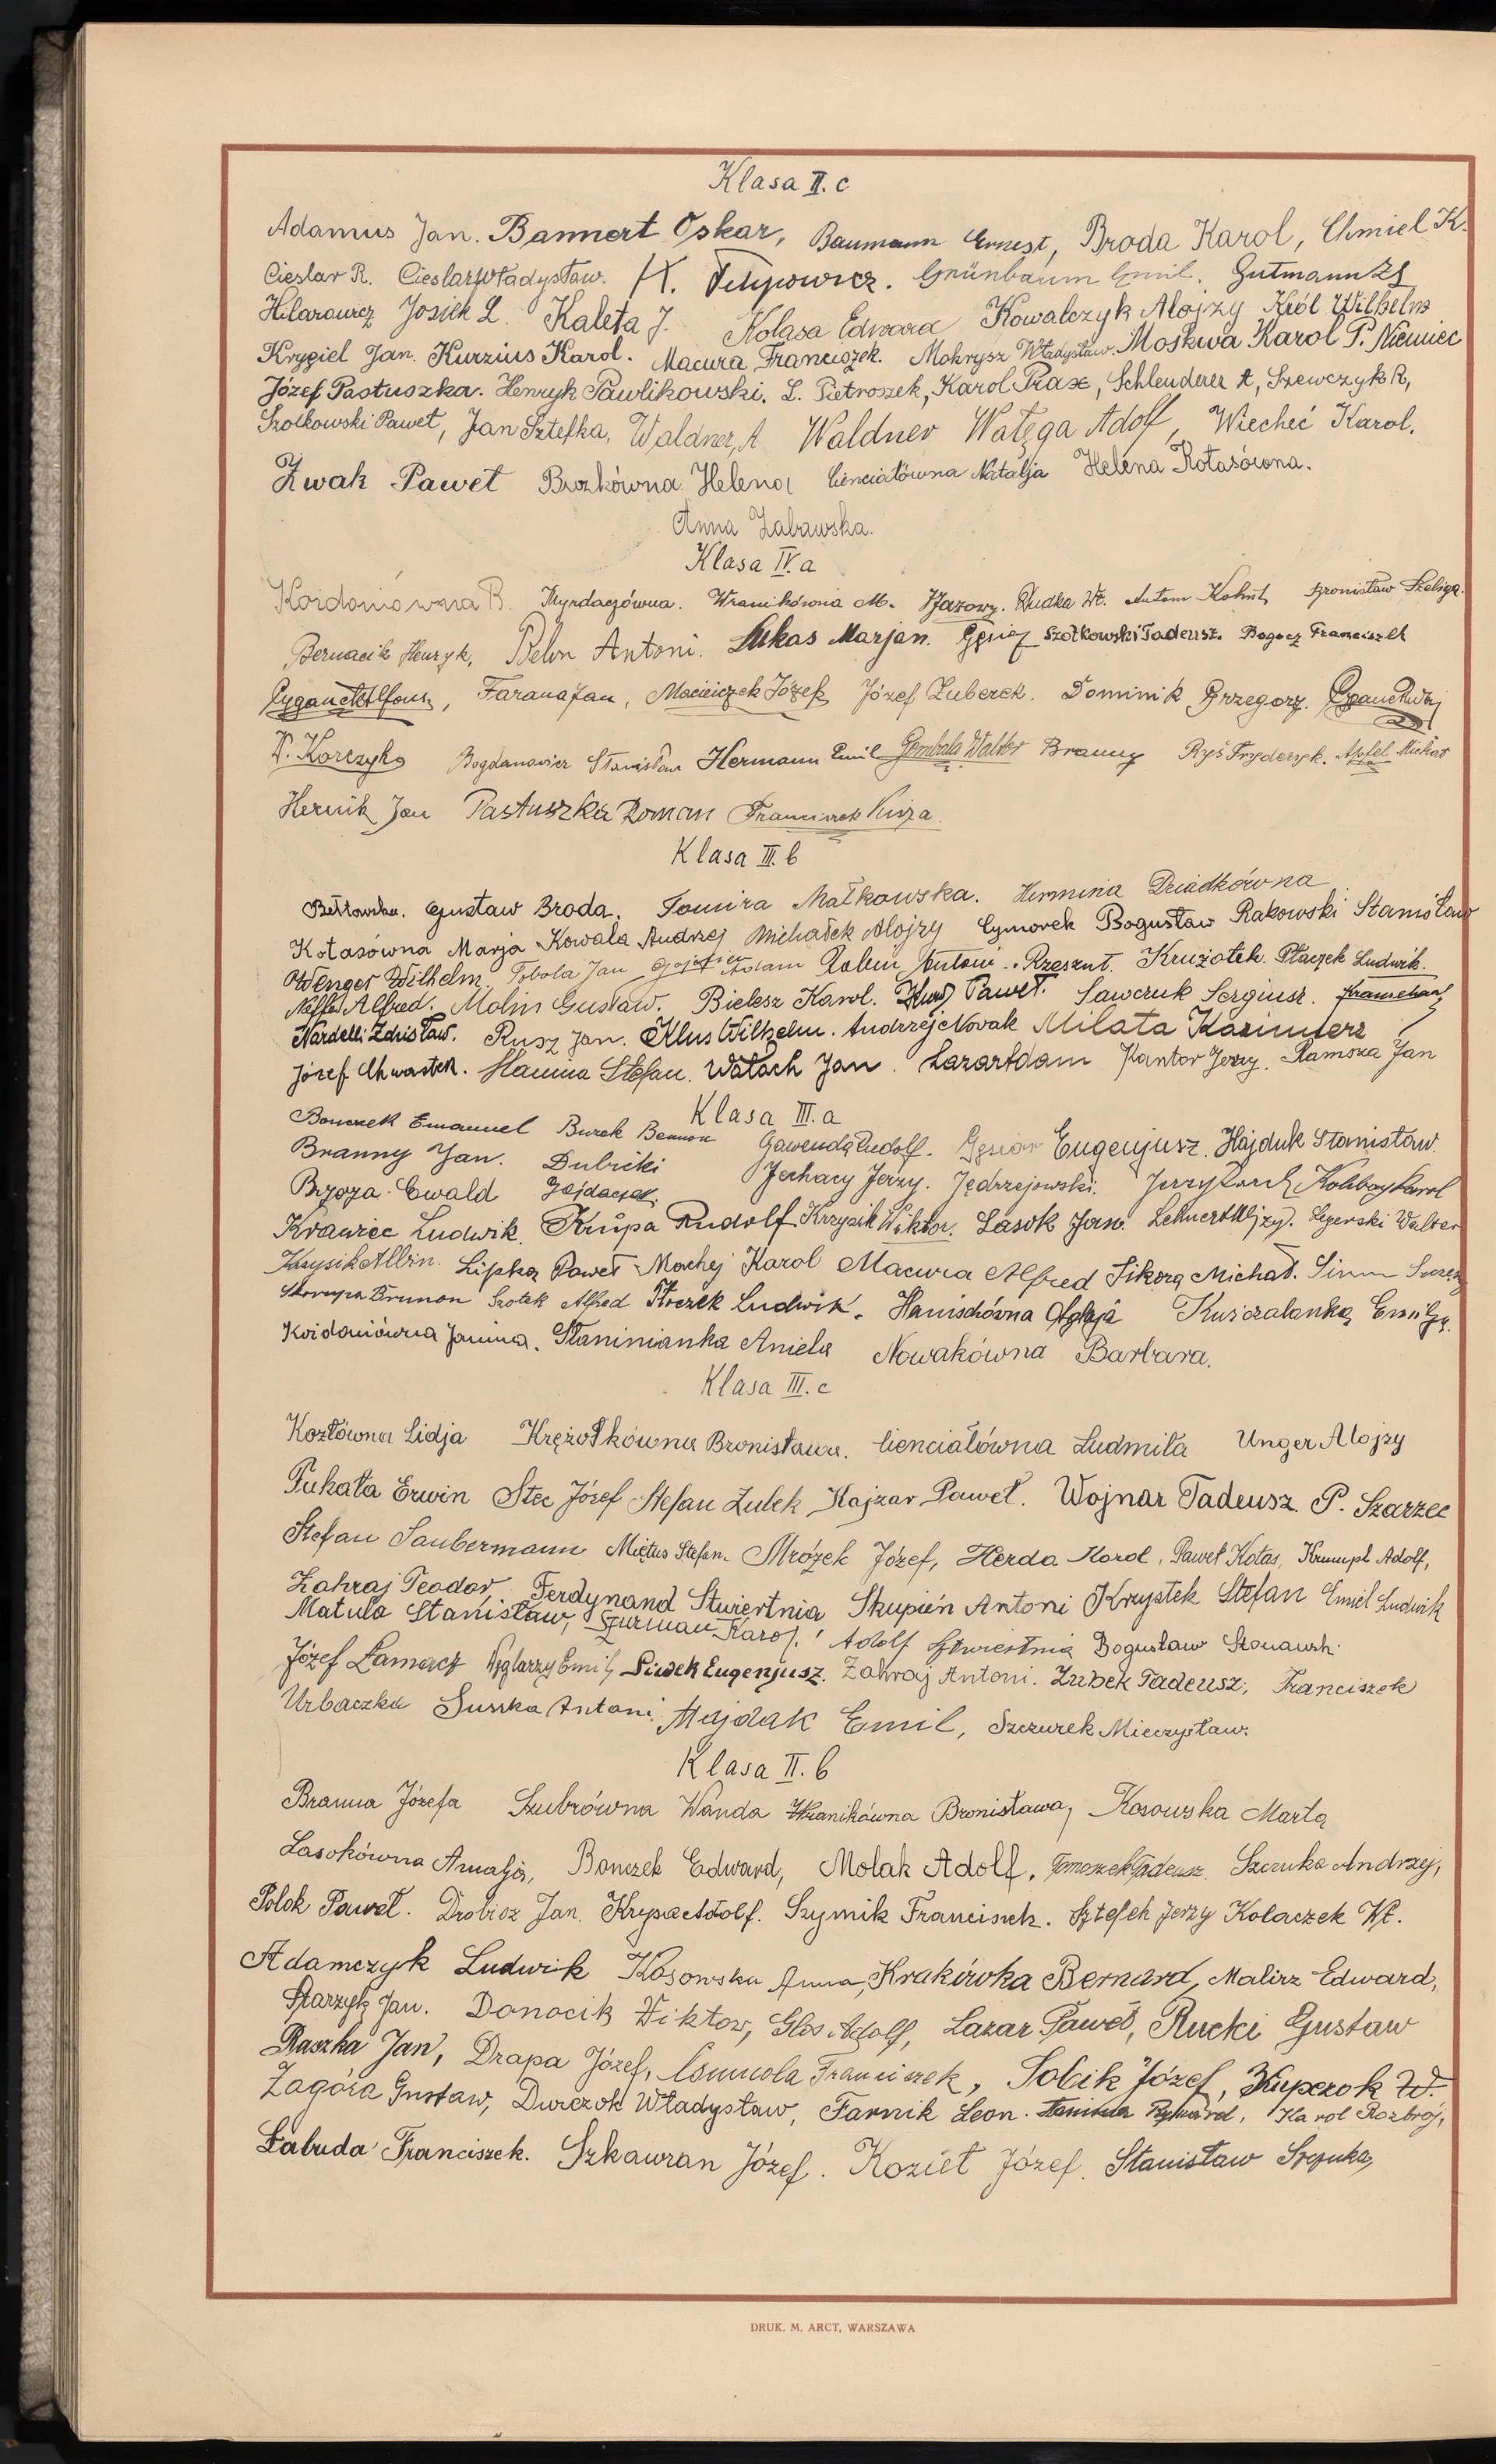 Klasa II. c
Adamus Jan. Bannert Oskar, Baumann Ernest, Broda Karol, Chmiel K.
Cieslar R. Cieslar Władysław. H. Filipowicz. Grünbaum Emil. Gutmann
Hilarowicz Josiek L. Kaleta J. Kolasa Edward Kowalczyk Alojzy Król Wilhelm
Krygiel Jan. Kurzius Karol. Macura Franciszek. Mokrysz Władysław. Moskwa Karol P. Niemiec
Józef Pastuszka. Henryk Pawlikowski. L. Pietroszek, Karol Prax, Schleuderer A, Szewczyk R,
Szołkowski Paweł, Jan Sztefka, Waldner, A Waldner Wałęga Adolf, Wiecheć Karol.
Żwak Paweł Brozkówna Helena Cienciałówna Natalja Helena Kotasówna.
Anna Zabawska.
Klasa IV. a
Kozdoniówna B. Myrdaczówna. Wranikówna M. Rudka Wł. Antoni Kohut, Bronisław Szeliga.
Bernacik Henryk, Belon Antoni. Lukas Marjan. Szołkowski Tadeusz. Bogocz Franciszek
Cyganek Alfons, Farana Jan, Macieiczek Józef Józef Zuberek. Dominik Grzegorz.
W. Korczyk Bogdanowicz Stanisław Hermann Emil Gembala Walter Branny Ryś Fryderyk. Apfel Michał
Hernik Jan Pastuszka Roman Franciszek Kisza.
Klasa III. b
Bełtowska. Gustaw Broda. Tomira Małkowska. Hermina Dziadkówna
Kotasówna Marja Kowala Andrzej Michałek Alojzy Cymorek Bogusław Rakowski Stanisław
Wenger Wilhelm. Tobola Jan Adam Rabin Antoni. Rzeszut. Krużołek. Płaczek Ludwik.
Neffe Alfred. Molin Gustaw. Bielesz Karol. Paweł. Sawczuk Sergiusz.
Nardelli Zdzisław. Rusz Jan. Klus Wilhelm. Andrzej Novak Milata Kazimierz
Józef Chwastek. Hanna Stefan. Wałach Jan. Lazar Adam Kantor Jerzy. Ramsza Jan
Klasa III. a
Bonczek Emanuel Burek Gawenda Rudolf. Gąsior Eugenjusz. Hajduk Stanisław.
Branny Jan. Dubicki Jochacy Jerzy. Jędrzejowski. Jerzy Karch Koliboy Karol
Brzoza Ewald Gajdaczek
Krawiec Ludwik. Krupa Rudolf Krzysik Wiktor. Lasok Jan. Lehnert Alojzy. Legerski Walter
Krzysik Albin. Lipka Paweł Machej Karol Macura Alfred Sikora Michał.
Skorupa Brunon Szotek Alfred Tłoczek Ludwik. Hanischówna Aglaja Kuśczalanka Emilja.
Kozdoniówna Janina. Staninianka Aniela Nowakówna Barbara.
Klasa III. c
Kozłówna Lidja Krężołkówna Bronisława. Cienciałówna Ludmiła Unger Alojzy
Pukała Erwin Stec Józef Stefan Zulek Kajzar Paweł. Wojnar Tadeusz P. Szarzec
Stefan Saubermann Miętus Stefan. Mrózek Józef, Herda Karol, Paweł Kotas, Krumpl Adolf,
Zahraj Teodor Ferdynand Stwiertnia Skupień Antoni Krzystek Stefan Emil Ludwik
Matula Stanisław, Szurman Karol. Adolf Sztwiertnia Bogusław
Józef Łamacz Węglarzy Emil, Siwek Eugenjusz. Zahraj Antoni. Zubek Tadeusz, Franciszek
Urbaczka Suszka Antoni. Majdak Emil, Szczurek Mieczysław.
Klasa II. b
Branna Józefa Szubrówna Wanda Wranikówna Bronisława, Kosowska Marta
Lasokówna Amalja, Bonczek Edward, Molak Adolf. Tomoszek Tadeusz. Szczuka Andrzej,
Polok Paweł. Drobisz Jan. Krypac Adolf. Szymik Franciszek. Sztefek Jerzy Kolaczek Wł.
Adamczyk Ludwik Kosowska Anna, Krakówka Bernard, Malirz Edward,
Starzyk Jan. Donocik Wiktor, Glos Adolf, Lazar Paweł, Rucki Gustaw
Raszka Jan, Drapa Józef, Franciszek, Sobik Józef, Kuperok W.
Zagóra Gustaw, Durczok Władysław, Farnik Leon. Karol Rozbrój,
Łabuda Franciszek. Szkawran Józef. Kozieł Józef. Stanisław Szczuka,
DRUK. M. ARCT, WARSZAWA